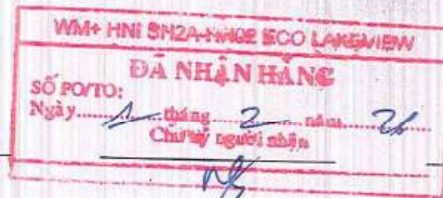 WM+ HNI SH2A-NH02 ECO LAKEVIEW
ĐÃ NHẬN HÀNG
SỐ PO/TO:
Ngày 1 tháng 2 năm 26
Chữ ký người nhận